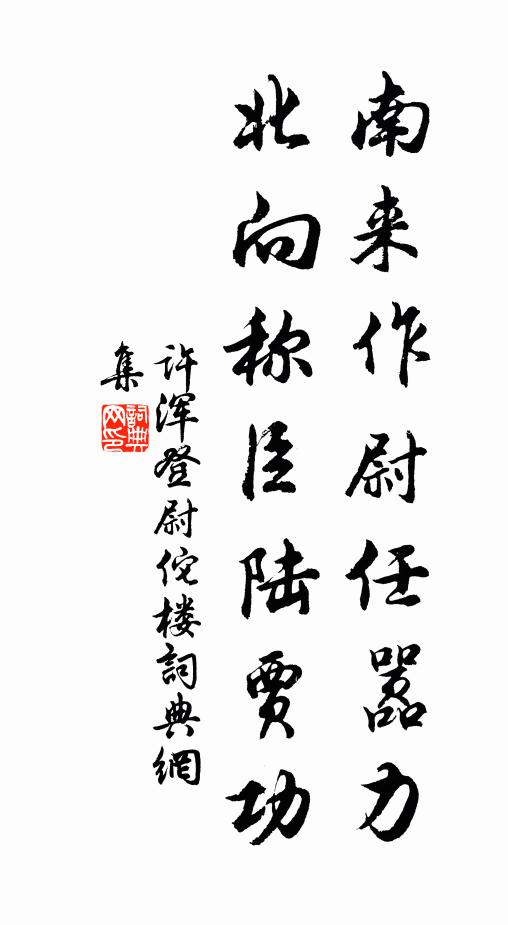 南来作尉任嚣力
北向称臣陆贾功
许浑登尉佗楼詞典網
集
詞典网印